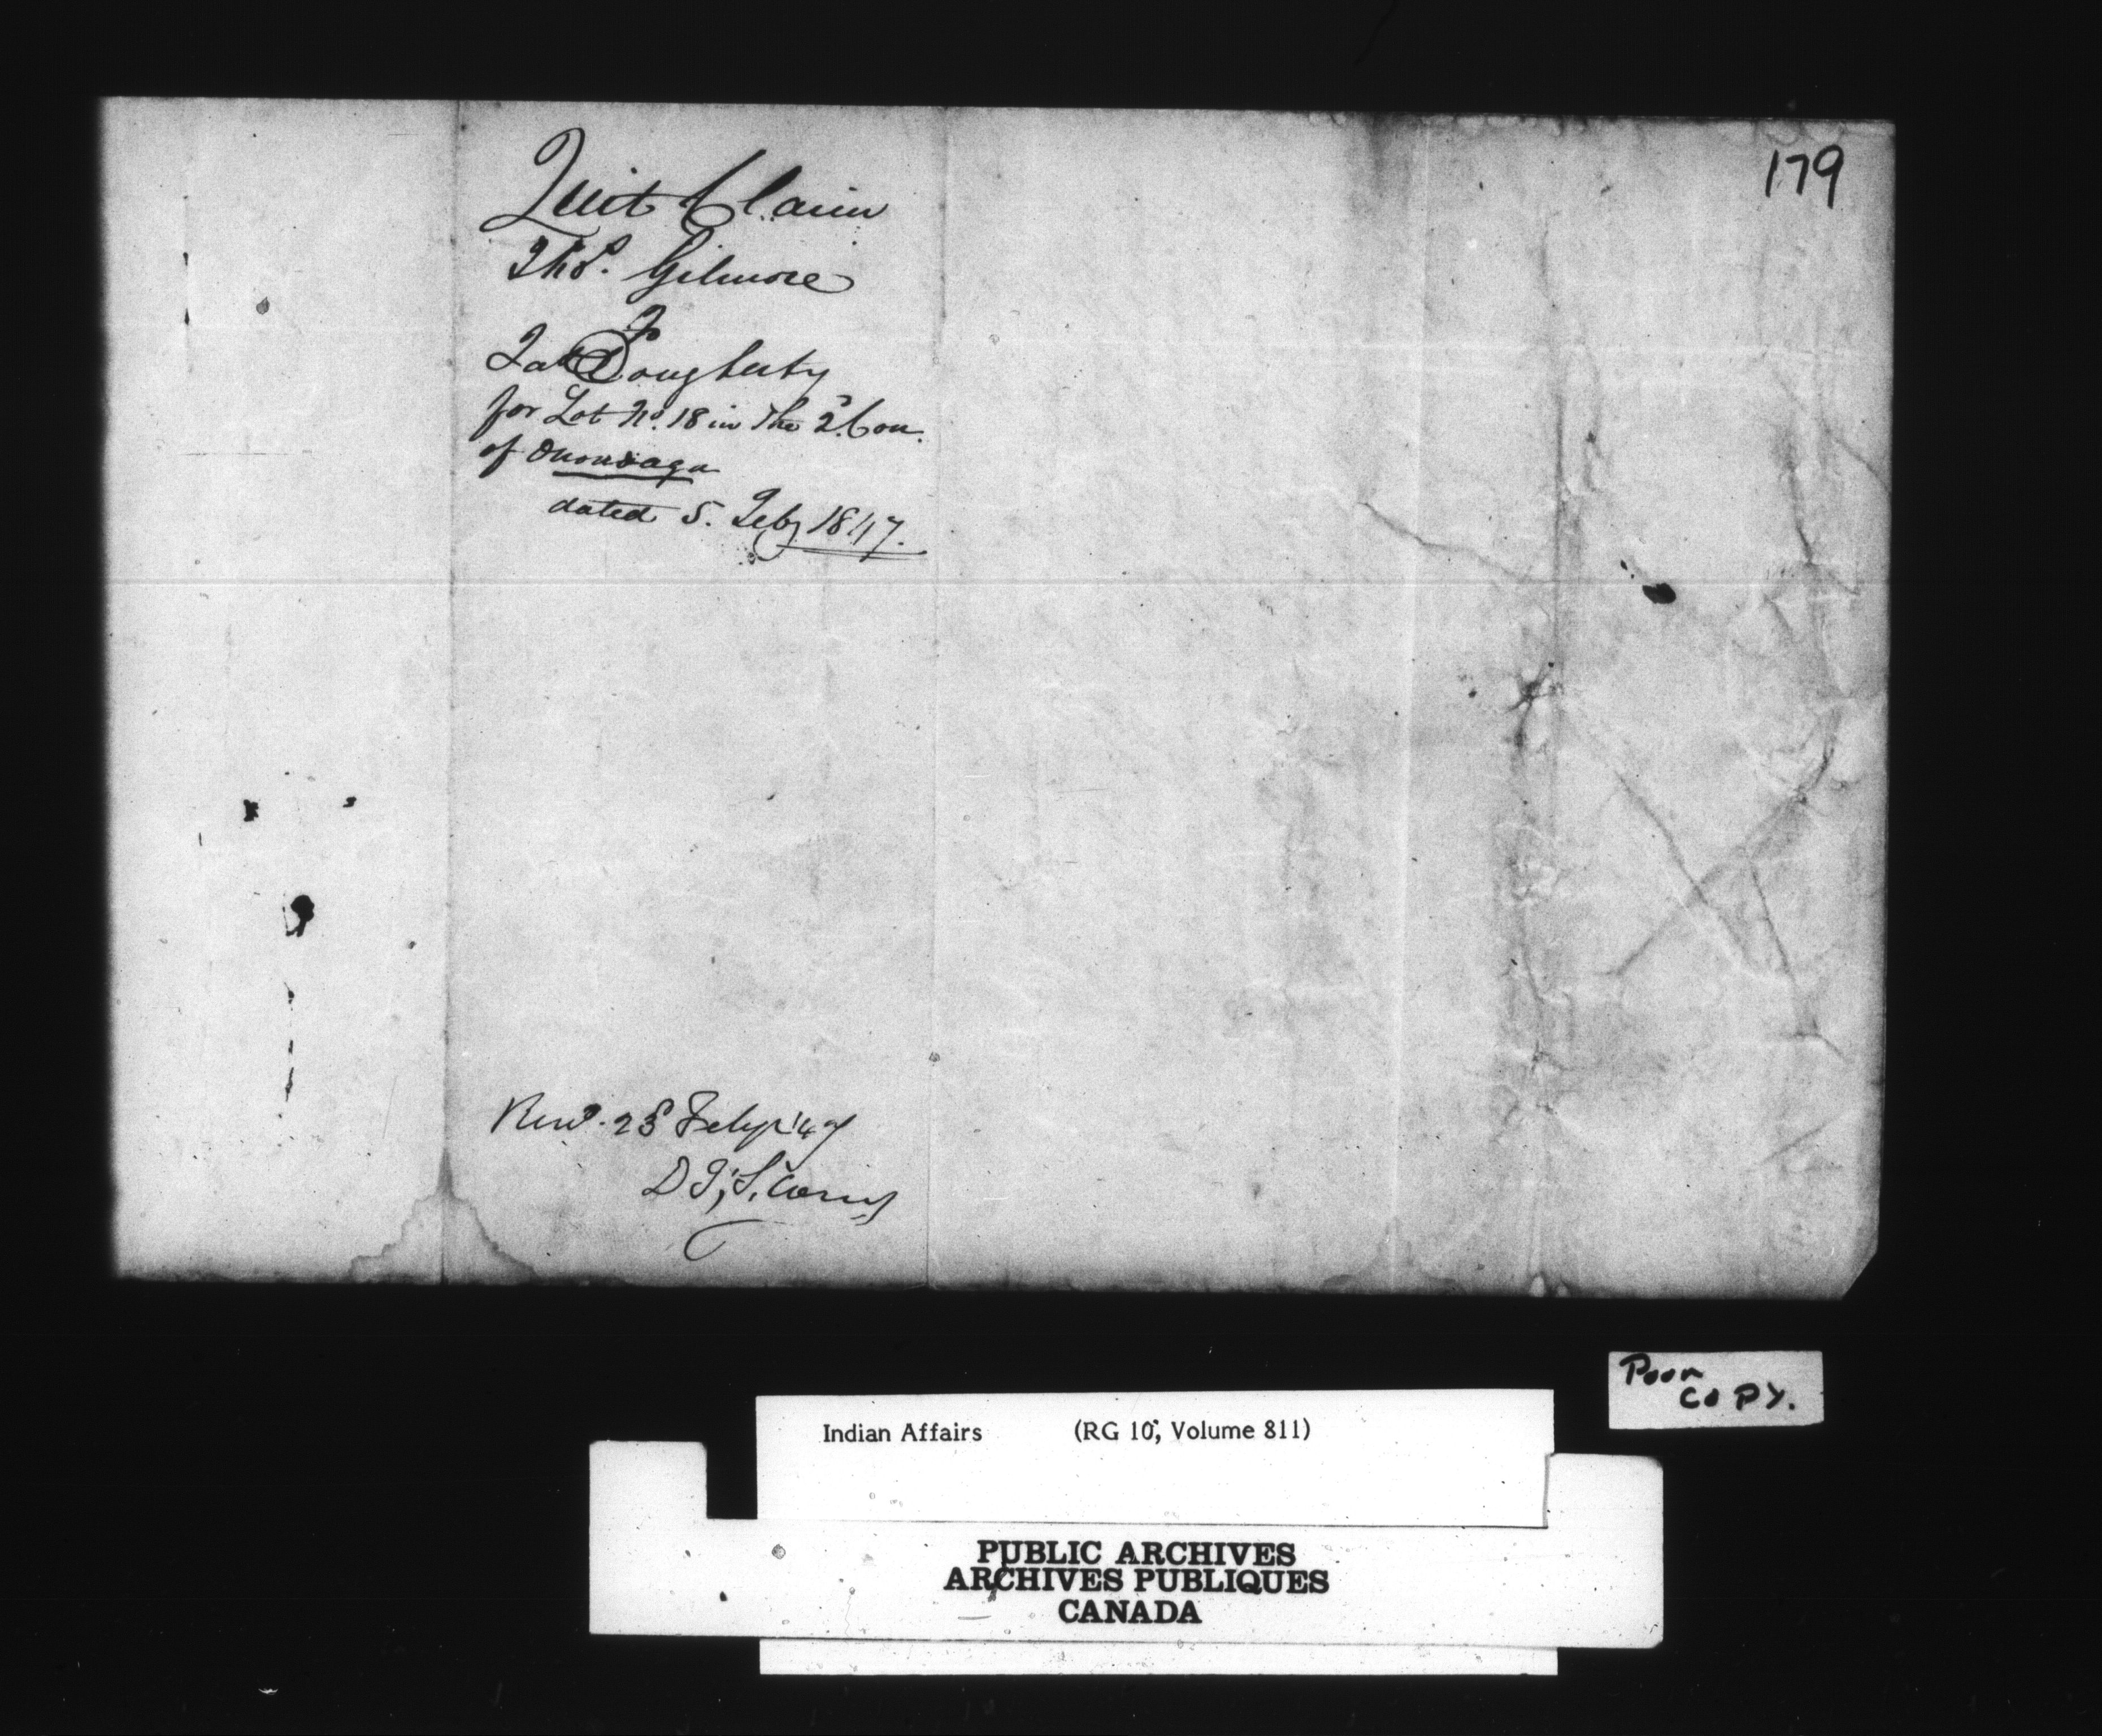 179
Quit Claim
Thos. Gilmore
To
Dougherty
for Lot No. 18 in the 2d Con.
of Onondaga
dated 5. Feby 1847.
Feby '47
Poor
COPY.
Indian Affairs (RG 10, Volume 811)
PUBLIC ARCHIVES
ARCHIVES PUBLIQUES
CANADA